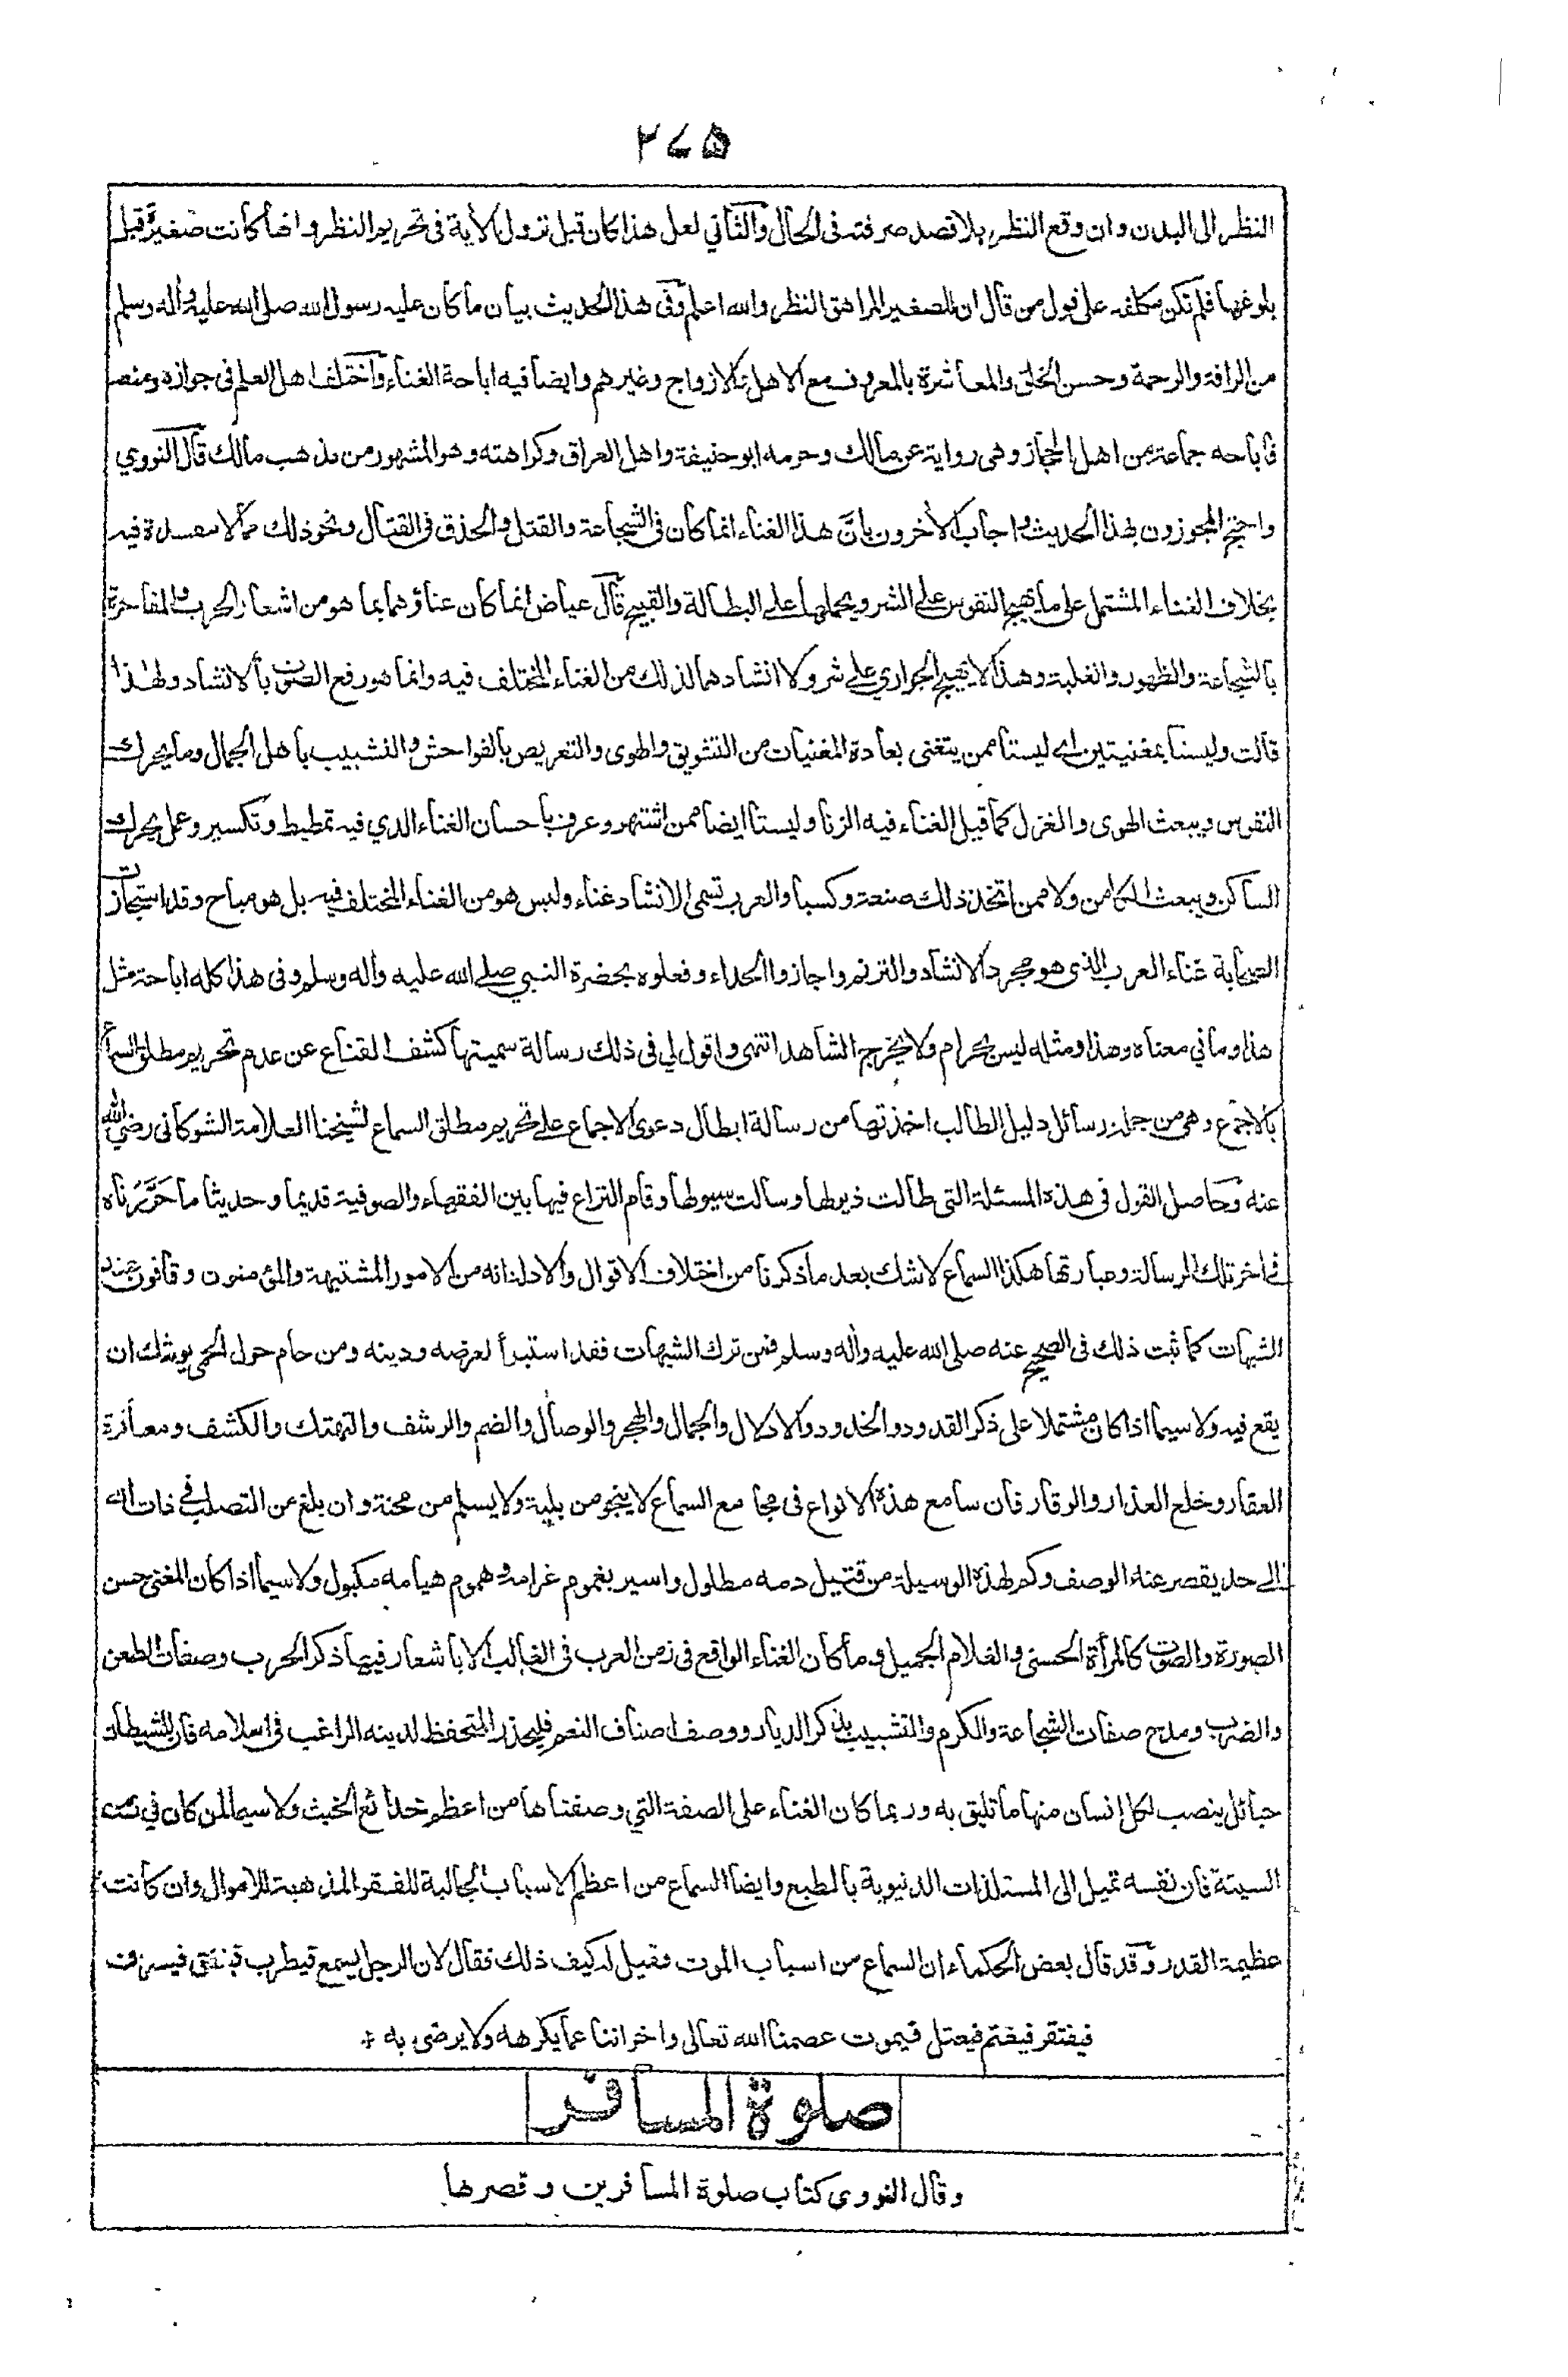 ٢٧٥
النظر الى البدن وان وقع النظر بلا قصد صرفته فى الحال والثاني لعل هذا كان قبل نزول الأية فى تحريم النظر وانها كانت صغيرة قبل
بلوغها فلم تكن مكلفه على قول من قال ان للصغير المراهق النظر والله اعلم وفى هذا الحديث بيان ما كان عليه رسول الله صلى الله عليه واله وسلم
من الرافة والرحمة وحسن الخلق والمعاشرة بالمعروف مع الاهل والازواج وغيرهم وايضا فيه اباحة الغناء واختلف اهل العلم فى جوازه ومنعه
فاباحه جماعة من اهل الحجاز وهى رواية عن مالك وحرمه ابو حنيفة واهل العراق وكراهته وهو المشهور من مذهب مالك قال النووي
واحتج المجوزون بهذا الحديث واجاب الأخرون بان هذا الغناء انما كان فى الشجاعة والقتل والحذق فى القتال ونحو ذلك مما لا مفسدة فيه
بخلاف الغناء المشتمل على ما يهيج النفوس على الشر ويحملها على البطالة والقبيح قال عياض انما كان غناؤهما بما هو من اشعار الحرب والمفاخرة
بالشجاعة والظهور والغلبة وهذا لا يهيج الجواري على شر ولا انشادهما لذلك من الغناء المختلف فيه وانما هو رفع الصوت بالانشاد ولهذا
قالت وليستا بمغنيتين اى ليستا ممن يتغنى بعادة المغنيات من التشويق والهوى والتعريض بالفواحش والتشبيب باهل الجمال وما يحرك
النفوس ويبعث الهوى والغزل كما قيل الغناء فيه الزنا وليستا ايضا ممن اشتهر وعرف باحسان الغناء الذي فيه تمطيط وتكسير وعمل يحرك
الساكن ويبعث الكامن ولا ممن اتخذ ذلك صنعة وكسبا والعرب تسمى الانشاد غناء وليس هو من الغناء المختلف فيه بل هو مباح وقد استجازت
الصحابة غناء العرب الذى هو مجرد الانشاد والترنم واجازوا الحداء وفعلوه بحضرة النبي صلى الله عليه واله وسلم وفى هذا كله اباحة مثل
هذا وما في معناه وهذا ومثله ليس بحرام ولا يخرج الشاهد انتهى واقول لي فى ذلك رسالة سميتها كشف القناع عن عدم تحريم مطلق السماع
بالاجماع وهى من جملة رسائل دليل الطالب اخذتها من رسالة ابطال دعوى الاجماع على تحريم مطلق السماع لشيخنا العلامة الشوكانى رضي الله
عنه وحاصل القول فى هذه المسئلة التى طالت ذيولها وسالت سيولها وقام النزاع فيها بين الفقهاء والصوفية قديما وحديثا ما حررناه
فى اخر تلك الرسالة وعبارتها هكذا السماع لا شك بعد ما ذكرنا من اختلاف الاقوال والادلة انه من الامور المشتبهة والمؤمنون وقافون عند
الشبهات كما ثبت ذلك فى الصحيح عنه صلى الله عليه واله وسلم فمن ترك الشبهات فقد استبرأ لعرضه ودينه ومن حام حول الحمى يوشك ان
يقع فيه ولا سيما اذا كان مشتملا على ذكر القدود والخدود والادلال والجمال والهجر والوصال والضم والرشف والتهتك والكشف ومعاقرة
العقار وخلع العذار والوقار فان سامع هذه الانواع فى مجامع السماع لا ينجو من بلية ولا يسلم من محنة وان بلغ من التصلب فى ذات الله
الى حد يقصر عنه الوصف وكم لهذه الوسيلة من قتيل دمه مطلول واسير بغموم غرامه وهموم هيامه مكبول ولا سيما اذا كان المغنى حسن
الصورة والصوت كالمرأة الحسنى والغلام الجميل وما كان الغناء الواقع فى زمن العرب فى الغالب الا باشعار فيها ذكر الحرب وصفات الطعن
والضرب ومدح صفات الشجاعة والكرم والتشبيب بذكر الديار ووصف اصناف النعم فليحذر المتحفظ لدينه الراغب فى اسلامه فان للشيطان
حبائل ينصب لكل انسان منها ما تليق به وربما كان الغناء على الصفة التي وصفناها من اعظم خدائع الخبث ولا سيما لمن كان في
السيئة فان نفسه تميل الى المستلذات الدنيوية بالطبع وايضا السماع من اعظم الاسباب الجالبة للفقر المذهبة للاموال وان كانت
عظيمة القدر وقد قال بعض الحكماء ان السماع من اسباب الموت فقيل له كيف ذلك فقال لان الرجل يسمع فيطرب فينفق فيسرف
فيفتقر فيغتم فيعتل فيموت عصمنا الله تعالى واخواننا عما يكرهه ولا يرضى به +
صلوة المسافر
وقال النووى كتاب صلوة المسافرين وقصرها